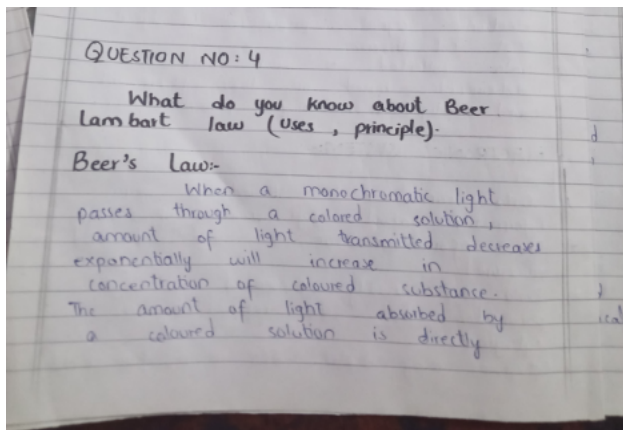 QUESTION NO: 4
What do you know about Beer
Lambart law (Uses, principle).
Beer's Law:-
When a monochromatic light
passes through a colored solution,
amount of light transmitted decreases
exponentially will increase in
concentration of coloured substance.
The amount of light absorbed by
a coloured solution is directly